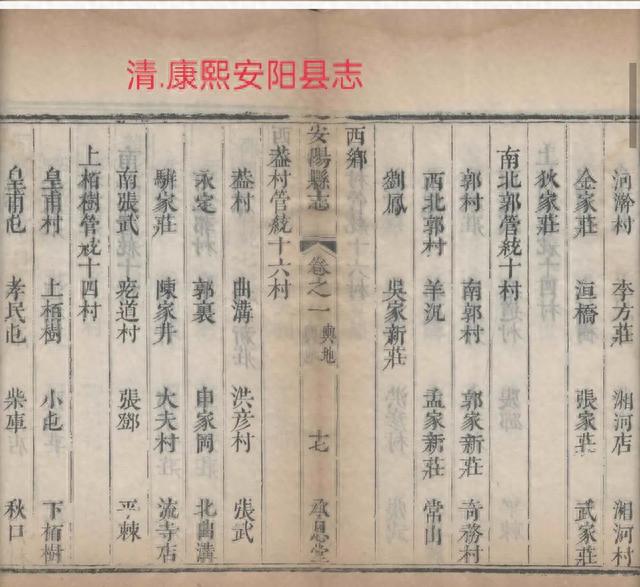 清.康熙安阳县志
河瀚村 李方莊 湘河店 湘河村
金家莊 洹橋 張家莊 武家莊
上狄家莊
南北郭管統十村
郭村 南郭村 郭家新莊 奇務村
西北郭村 羊沉 孟家新莊 常山
劉鳳 吳家新莊
西鄉
安陽縣志 卷之一 輿地 十七 承恩堂
西蓋村管統十六村
蓋村 曲溝 洪彥村 張武
永定郭村 郭裏 申家岡 北曲溝
駢家莊 陳家井 大夫村 流寺店
南張武 疙道村 張鄧 平棘
上栢樹管統十四村
皇甫村 上栢樹 小屯 下栢樹
皇甫屯 孝民屯 柴庫 秋口